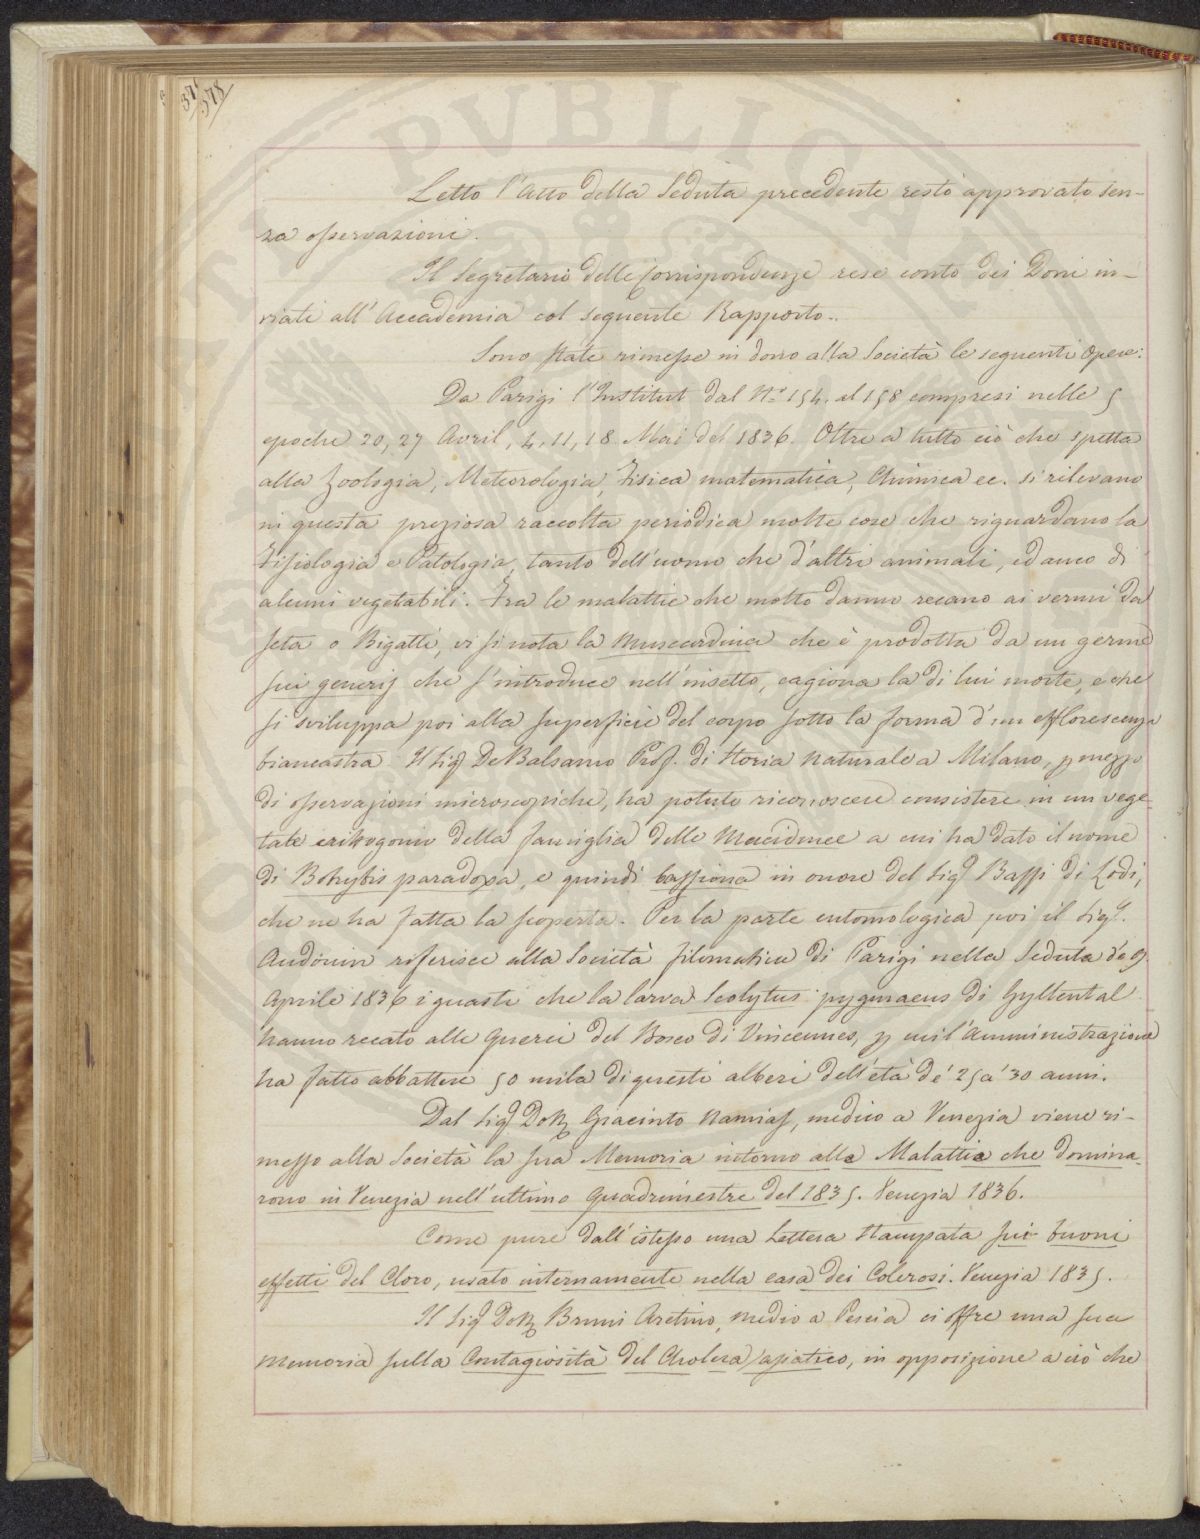 378
Letto l'Atto della Seduta precedente restò approvato sen-
za osservazioni.
Il Segretario delle Corrispondenze rese conto dei Doni in-
viati all'Accademia col seguente Rapporto..
Sono state rimesse in dono alla Società le seguenti Opere:
Da Parigi l'Institut dal N.º 154. al 158 compresi nelle 5
epoche 20, 27 Avril, 4, 11, 18 Mai del 1836. Oltre a tutto ciò che spetta
alla Zoologia, Meteorologia, Fisica matematica, Chimica ec. si rilevano
in questa preziosa raccolta periodica molte cose che riguardano la
Fisiologia e Patologia, tanto dell'uomo che d'altri animali, ed anco di
alcuni vegetabili. Fra le malattie che molto danno recano ai vermi da
seta o Bigatti, vi si nota la Muscardina che è prodotta da un germe
sui generis che s'introduce nell'insetto, cagiona la di lui morte, e che
si sviluppa poi alla superficie del corpo sotto la forma d'un efflorescenza
biancastra. Il Sig. De Balsamo Prof. di Storia Naturale a Milano, p mezzo
di osservazioni microscopiche, ha potuto riconoscere consistere in un vege-
tale critogomo della famiglia delle Mucidinee a cui ha dato il nome
di Botrytis paradoxa, e quindi bassiona in onore del Sig. Bassi di Lodi,
che ne ha fatta la scoperta. Per la parte entomologica poi il Sig.
Audouin riferisce alla Società filomatica di Parigi nella Seduta de 9
Aprile 1836 i guasti che la larva Scolytus pygmaeus di Gyllental
hanno recato alle Querci del Bosco di Vincennes, p cui l'Amministrazione
ha fatto abbattere 50 mila di questi alberi dell'età de' 25 a' 30 anni.
Dal Sig. Dott. Giacinto Namias, medico a Venezia viene ri-
messo alla Società la sua Memoria intorno alle Malattie che domina-
rono in Venezia nell'ultimo Quadrimestre del 1835. Venezia 1836.
Come pure dall'istesso una Lettera stampata sui buoni
effetti del Cloro, usato internamente nella casa dei Colerosi. Venezia 1835.
Il Sig. Dott. Bruni Aretino, Medico a Pescia ci offre una sua
Memoria sulla Contagiosità del Cholera asiatico, in opposizione a ciò che
PVBLICA